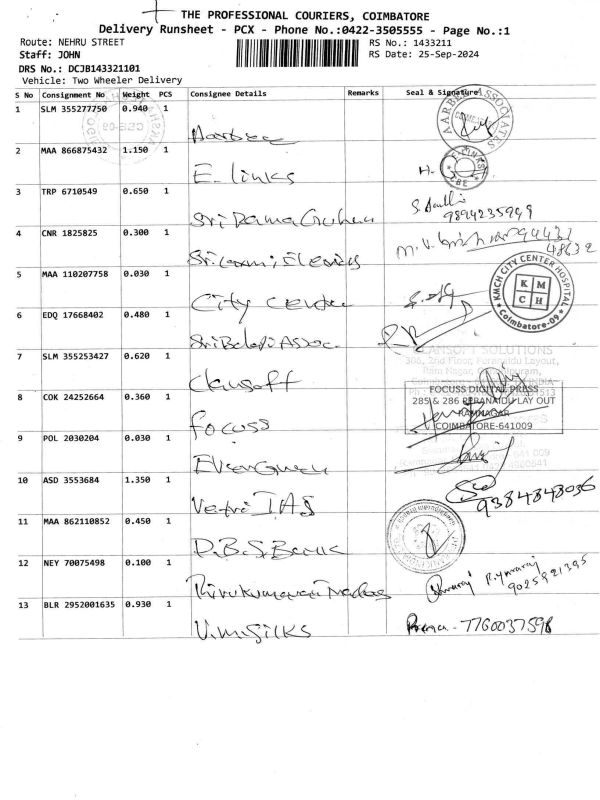 THE PROFESSIONAL COURIERS, COIMBATORE
Delivery Runsheet - PCX - Phone No.:0422-3505555 - Page No.:1
Route: NEHRU STREET
RS No.: 1433211
Staff: JOHN
RS Date: 25-Sep-2024
DRS No.: DCJB143321101
Vehicle: Two Wheeler Delivery
S No Consignment No Weight PCS Consignee Details Remarks Seal & Signature
1 SLM 355277750 0.940 1
AARBEE ASSOCIATES
2 MAA 866875432 1.150 1
E. links
E-LINKS
CBE
3 TRP 6710549 0.650 1
9894235949
4 CNR 1825825 0.300 1
48632
5 MAA 110207758 0.030 1
City Center
KMCH CITY CENTER HOSPITAL
K M
C H
Coimbatore-09
6 EDQ 17668402 0.480 1
Sri Balaji Assoc
7 SLM 355253427 0.620 1
Clansoft
CLANSOFT SOLUTIONS
306, 2nd Floor, Peranaidu Layout,
Ram Nagar,
8 COK 24252664 0.360 1
focuss
FOCUSS DIGITAL PRESS
285 & 286 PERANAIDU LAY OUT
RAMNAGAR
COIMBATORE-641009
9 POL 2030204 0.030 1
Evergreen
10 ASD 3553684 1.350 1
Vetri IAS
9384848036
11 MAA 862110852 0.450 1
D.B.S. Bank
12 NEY 70075498 0.100 1
Thirukumaran Traders
9025921395
13 BLR 2952001635 0.930 1
V.M. Silks
7760037598